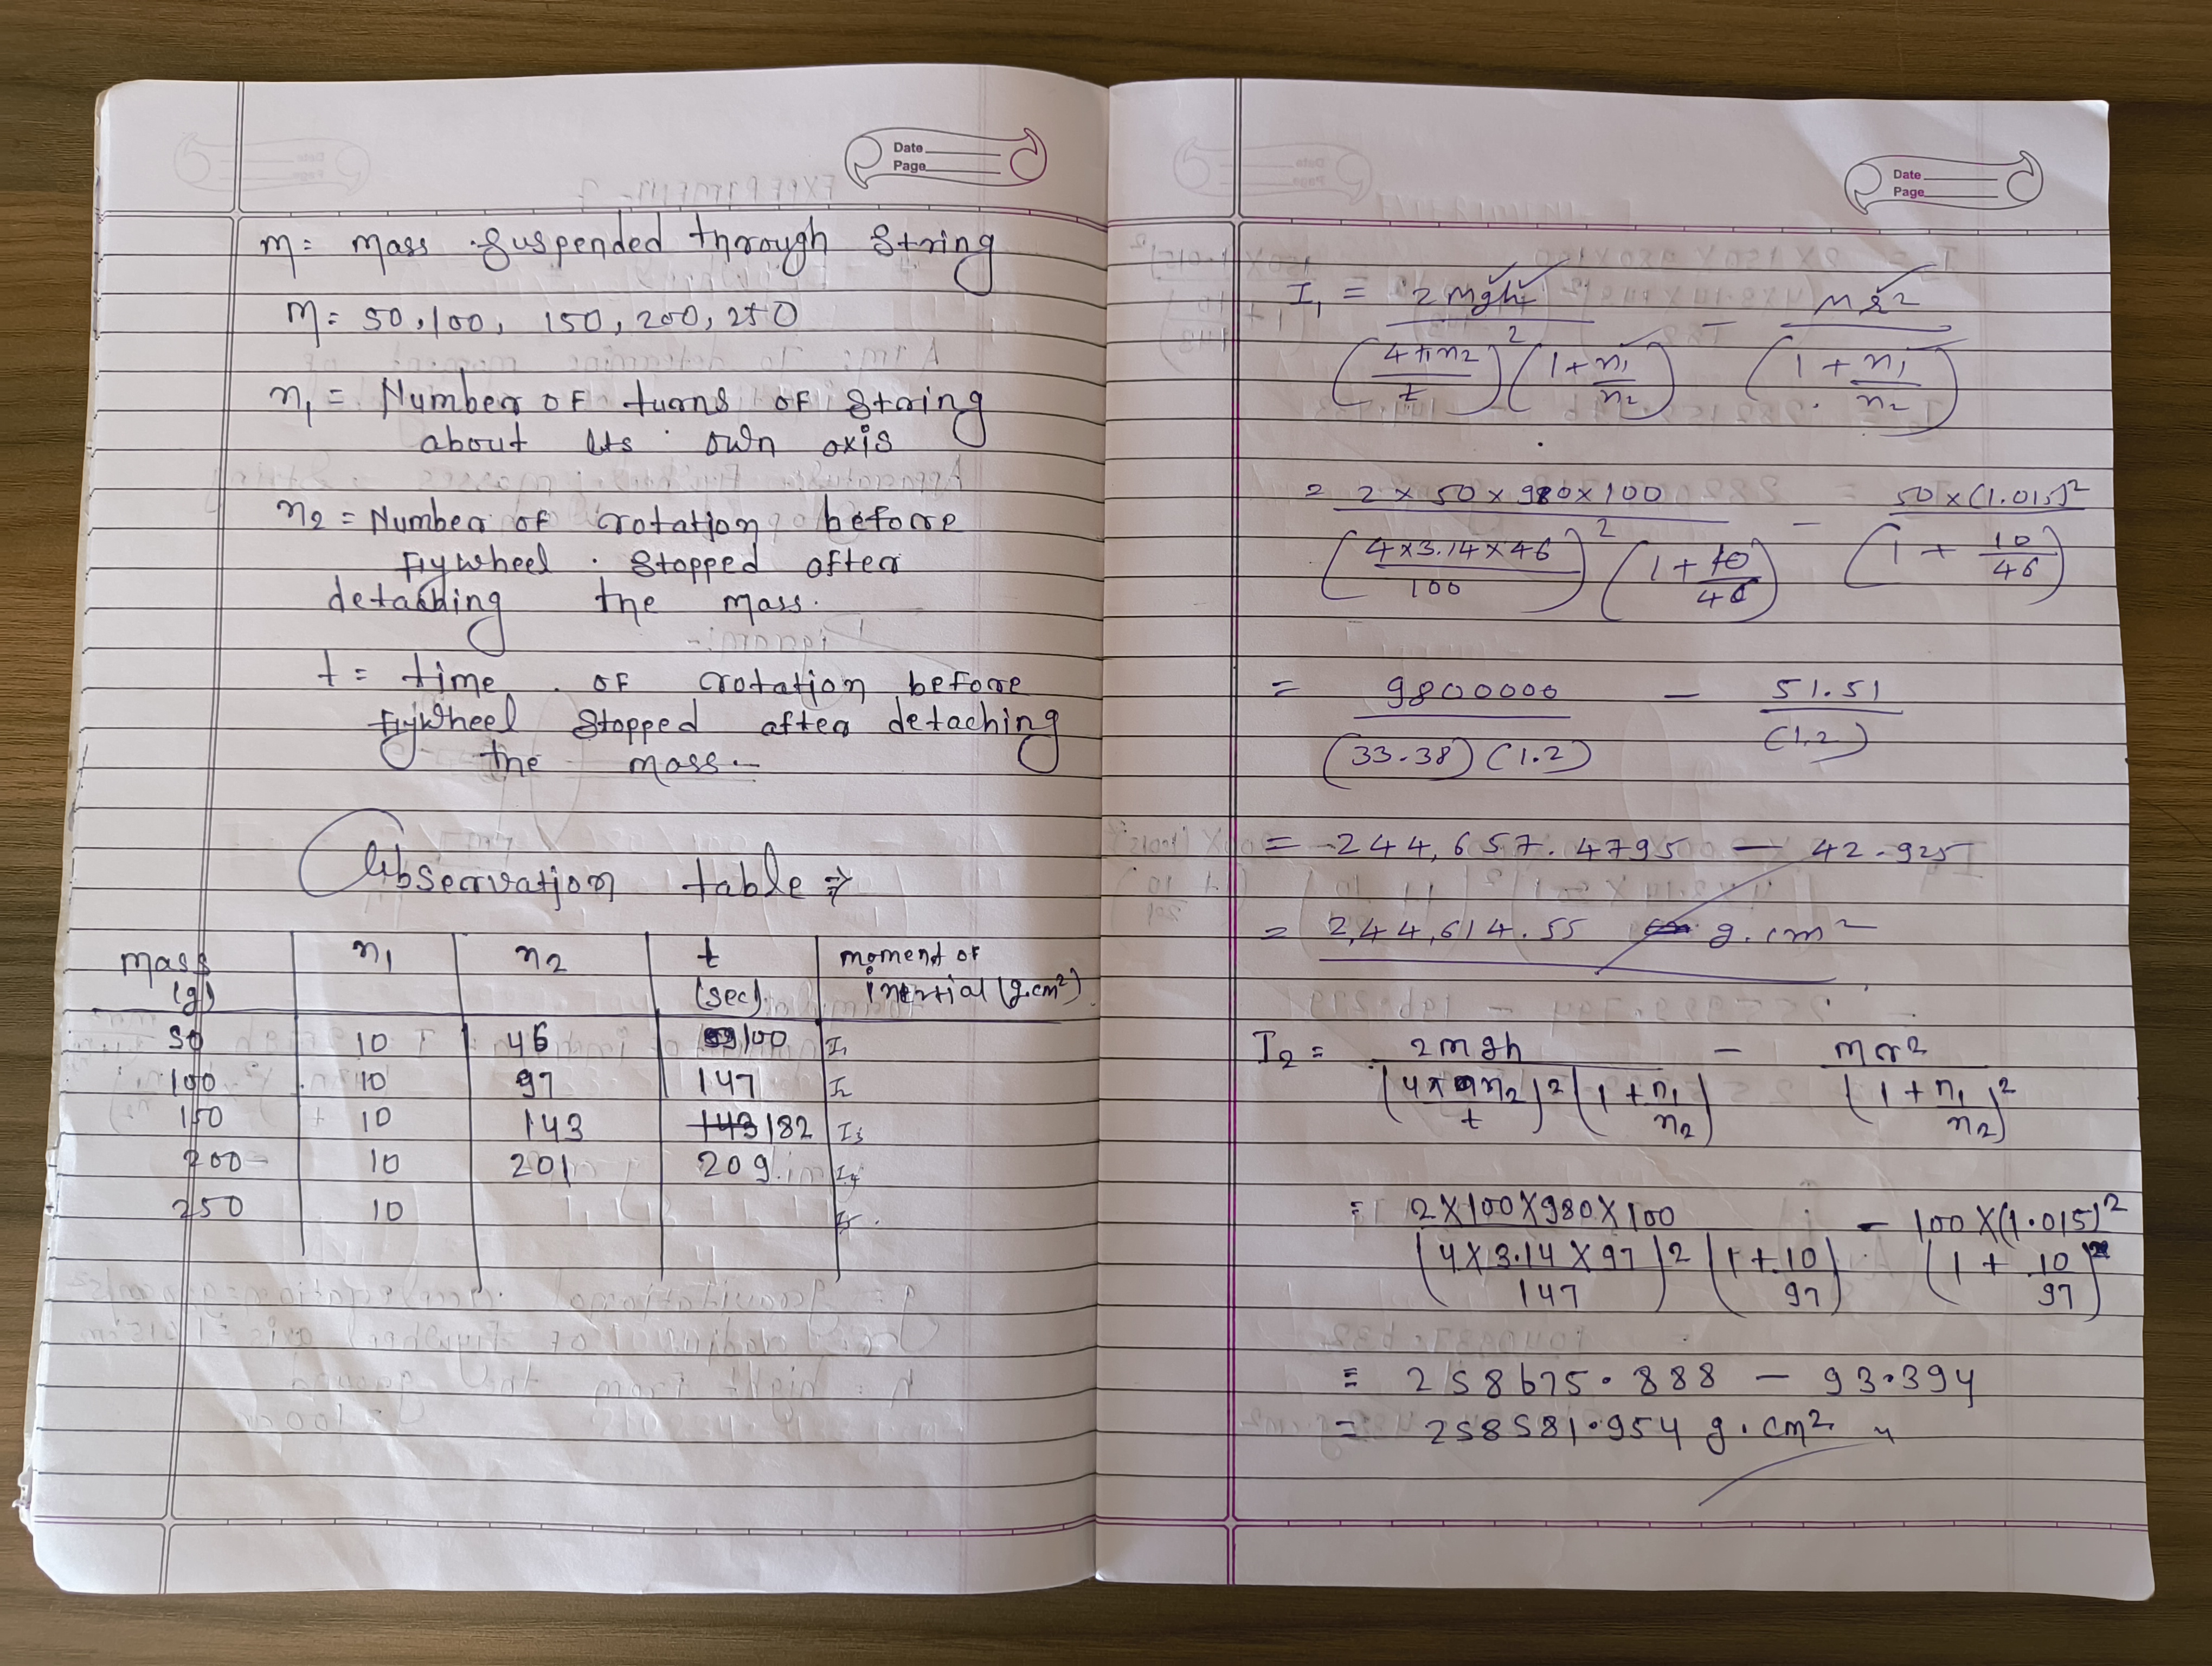 Date
Page
m = mass suspended through string
m = 50, 100, 150, 200, 250
n1 = Number of turns of string
about its own axis
n2 = Number of rotation before
flywheel stopped after
detaching the mass.
t = time of rotation before
flywheel stopped after detaching
the mass.-
Observation table ⇒
mass (g) n1 n2 t (sec) moment of inertial (g.cm²)
50 10 46 100 I1
100 10 97 147 I2
150 10 143 143 182 I3
200 10 201 209 I4
250 10 I5
Date
Page
I1 = 2mgh / (4πn2/t)² (1 + n1/n2) - Mr² / (1 + n1/n2)
= 2 × 50 × 980 × 100 / (4 × 3.14 × 46 / 100)² (1 + 10/46) - 50 × (1.015)² / (1 + 10/46)
= 9800000 / (33.38) (1.2) - 51.51 / (1.2)
= 244,657.4795 - 42.925
= 2,44,614.55 g.cm²
I2 = 2mgh / (4πn2/t)² (1 + n1/n2) - mr² / (1 + n1/n2)²
= 2 X 100 X 980 X 100 / (4 X 3.14 X 97 / 147)² (1 + 10/97) - 100 X (1.015)² / (1 + 10/97)²
= 258675.888 - 93.394
= 258581.954 g.cm²